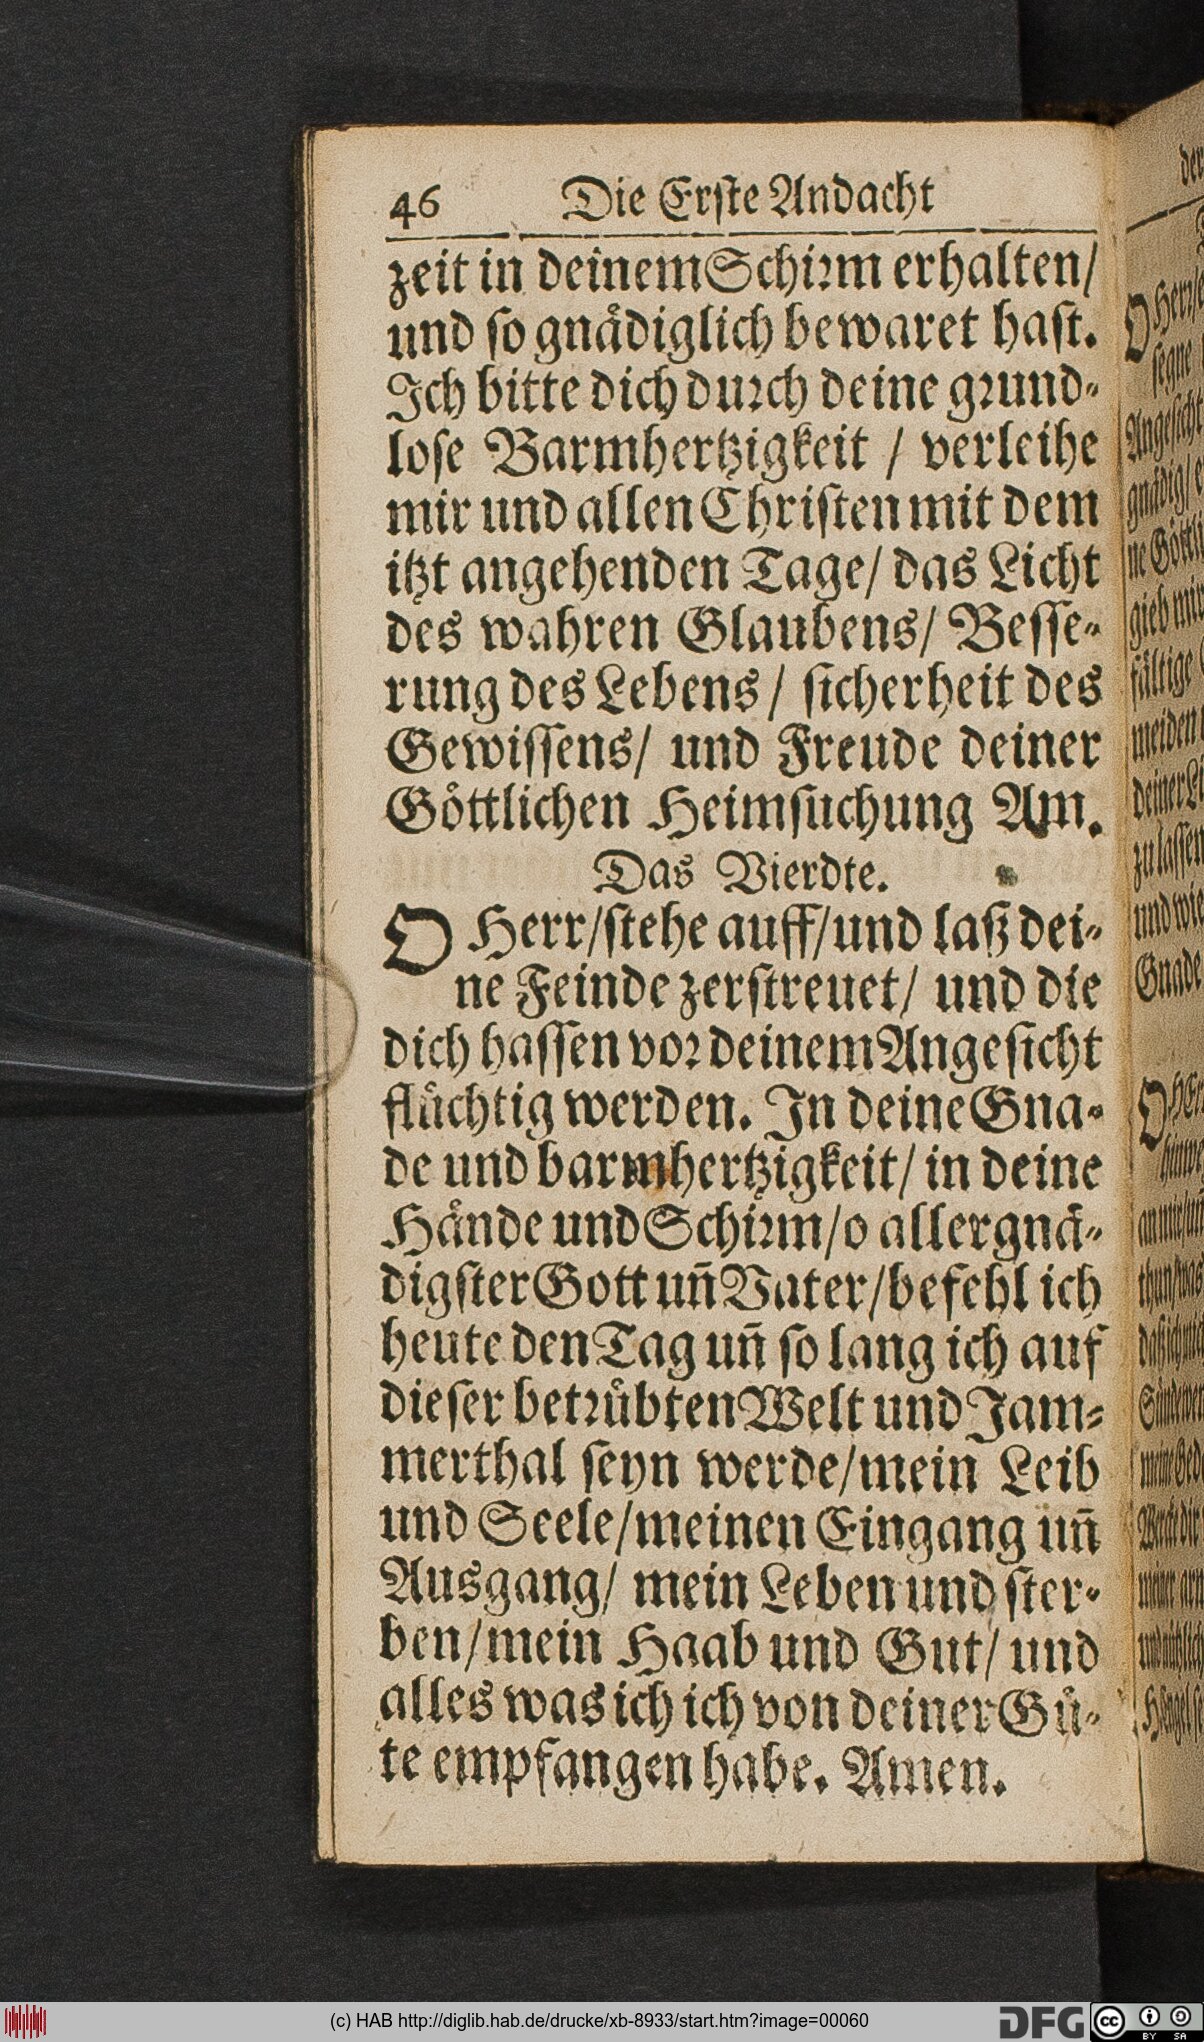 46 Die Erſte Andacht
zeit in deinem Schiꝛm erhalten/
und ſo gnaͤdiglich bewaret haſt.
Ich bitte dich duꝛch deine gꝛund⸗
loſe Barmhertzigkeit / verleihe
mir und allen Chriſten mit dem
itzt angehenden Tage/ das Licht
des wahren Glaubens/ Beſſe⸗
rung des Lebens / ſicherheit des
Gewiſſens/ und Freude deiner
Goͤttlichen Heimſuchung Am.
Das Vierdte.
O Herr/ſtehe auff/und laß dei⸗
ne Feinde zerſtreuet/ und die
dich haſſen voꝛ deinem Angeſicht
fluͤchtig werden. In deine Gna⸗
de und barmhertzigkeit/ in deine
Haͤnde und Schiꝛm/o allergnaͤ⸗
digſter Gott un̄ Vater/befehl ich
heute den Tag un̄ ſo lang ich auf
dieſer betꝛuͤbten Welt und Jam⸗
merthal ſeyn werde/mein Leib
und Seele/meinen Eingang un̄
Ausgang/ mein Leben und ſter⸗
ben/mein Haab und Gut/ und
alles was ich ich von deiner Guͤ⸗
te empfangen habe. Amen.
(c) HAB http://diglib.hab.de/drucke/xb-8933/start.htm?image=00060
DFG
cc BY SA